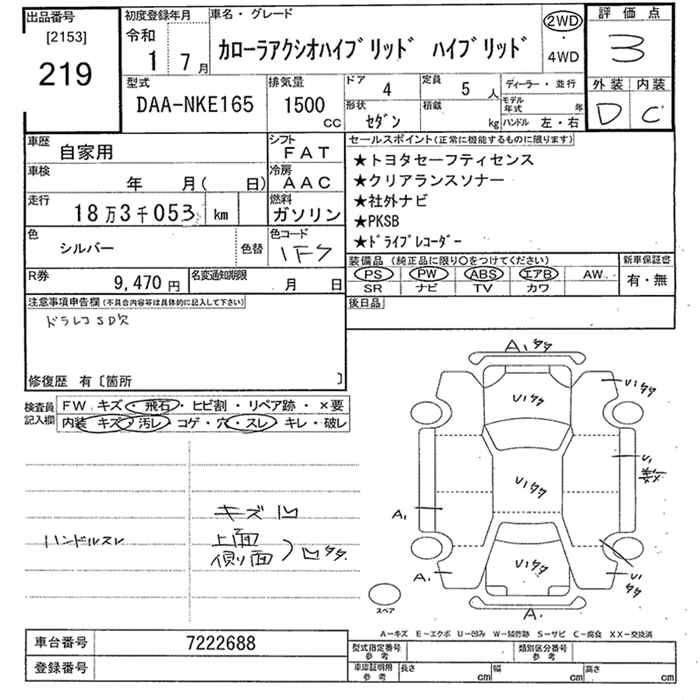 出品番号
[2153]
219
初度登録年月
令和
1 7月
車名・グレード
カローラアクシオハイブリッド ハイブリッド
2WD
・
4WD
評価点
3
外装 内装
D C
型式
DAA-NKE165
排気量
1500
CC
ドア
4
定員
5 人
形状
セダン
積載
kg
ディーラー・並行
モデル年式 年
ハンドル 左・右
車歴
自家用
シフト
FAT
車検
年 月( 日)
冷房
AAC
走行
18万3千053 km
燃料
ガソリン
色
シルバー
色替
色コード
1F7
R券
9,470 円
名変通知期限
月 日
セールスポイント(正常に機能するものに限ります)
★トヨタセーフティセンス
★クリアランスソナー
★社外ナビ
★PKSB
★ドライブレコーダー
装備品 (純正品に限り○をつけてください)
PS PW ABS エアB AW
SR ナビ TV カワ
新車保証書
有・無
後日品
注意事項申告欄(不具合内容等は具体的に記入して下さい)
ドラレコSD欠
修復歴 有〔箇所 〕
検査員記入欄
FW キズ・飛石・ヒビ割・リペア跡・×要
内装 キズ・汚レ・コゲ・穴・スレ・キレ・破レ
キズ凹
ハンドルスレ
上面
側面
凹タタ
A1タタ
U1タタ
U1タタ
U1
U1タタ
A1
U1タタ
A1
U1タタ
A1
スペア
A-キズ E-エクボ U-凹み W-補修跡 S-サビ C-腐食 XX-交換済
車台番号
7222688
登録番号
型式指定番号
参考
類別区分番号
参考
車庫証明用
参考
長さ cm
幅 cm
高さ cm